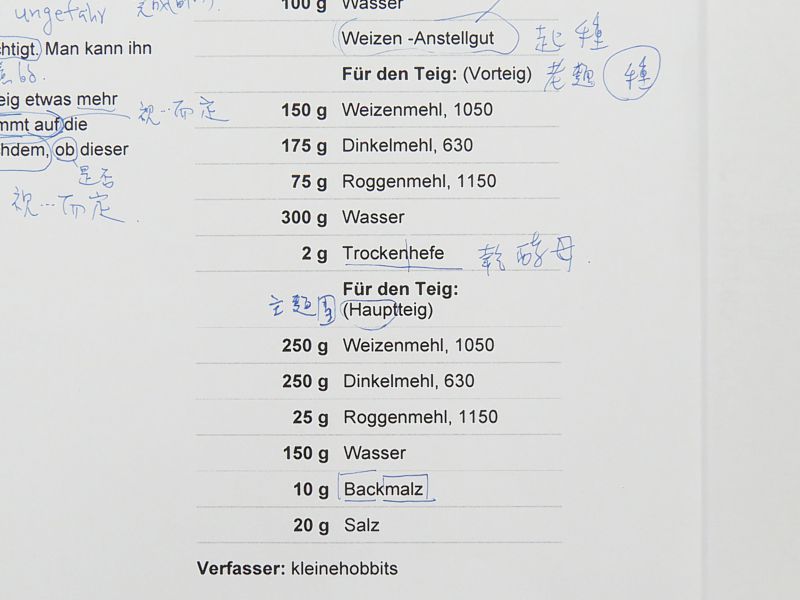 ungefähr
100 g Wasser
Weizen -Anstellgut 起種
chtigt. Man kann ihn
Für den Teig: (Vorteig) 老麵種
eig etwas mehr
視…而定
150 g Weizenmehl, 1050
mmt auf die
175 g Dinkelmehl, 630
hdem, ob dieser
是否
75 g Roggenmehl, 1150
視…而定
300 g Wasser
2 g Trockenhefe 乾酵母
Für den Teig:
主麵團 (Hauptteig)
250 g Weizenmehl, 1050
250 g Dinkelmehl, 630
25 g Roggenmehl, 1150
150 g Wasser
10 g Backmalz
20 g Salz
Verfasser: kleinehobbits